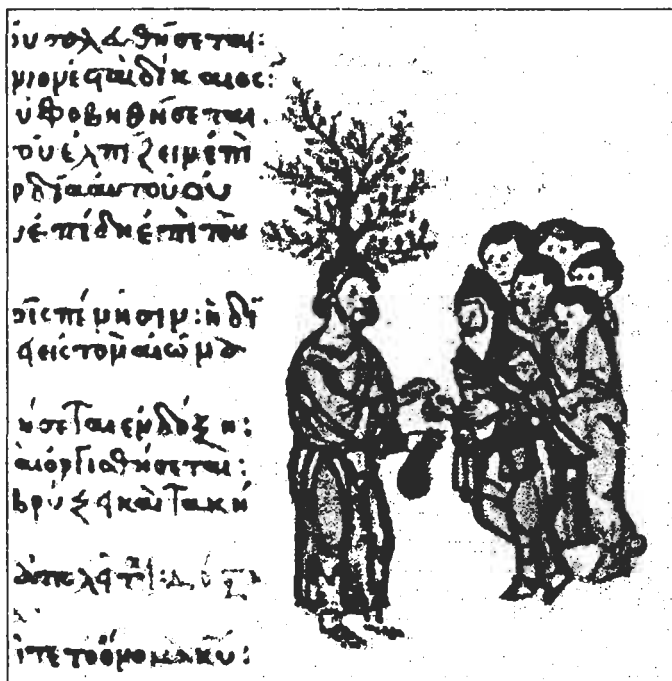 ὐ σαλευθήσεται:
νιον ἔσται δίκαιος:
ὐ φοβηθήσεται.
ου ἐλπίζειν ἐπὶ
ρδία αὐτοῦ οὐ
ἐπίδη ἐπὶ τοὺ
οῖς πένησιν: ἡ δι
εἰς τὸν αἰῶνα
ήσεται ἐν δόξη:
αι ὀργισθήσεται:
βρύξει καὶ τακή
ῖτε τὸ ὄνομα κυ: